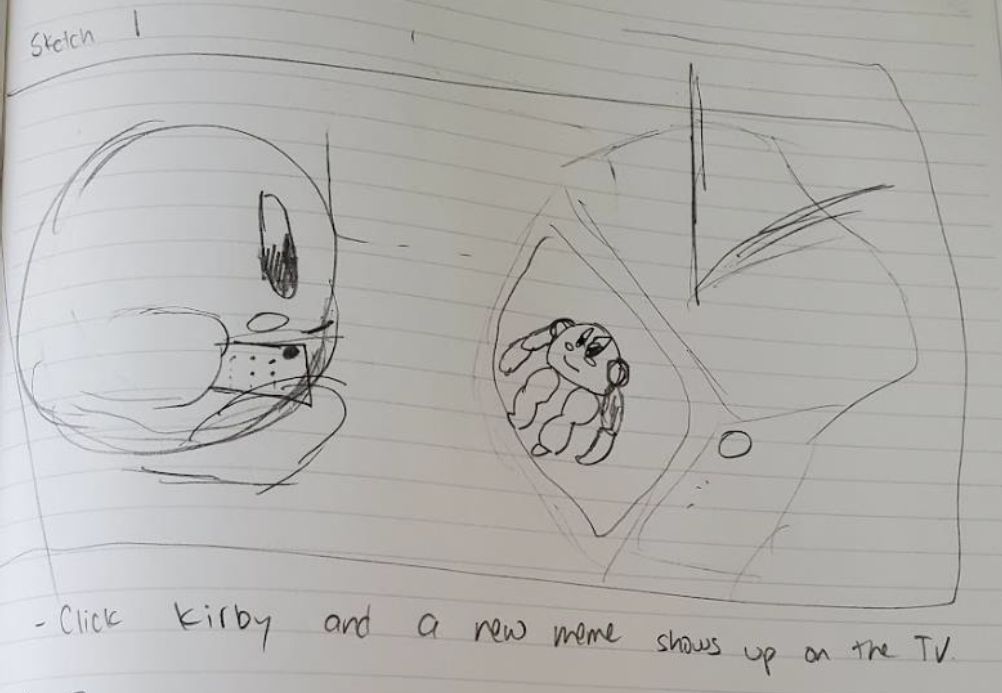 Sketch 1
- Click Kirby and a new meme shows up on the TV.